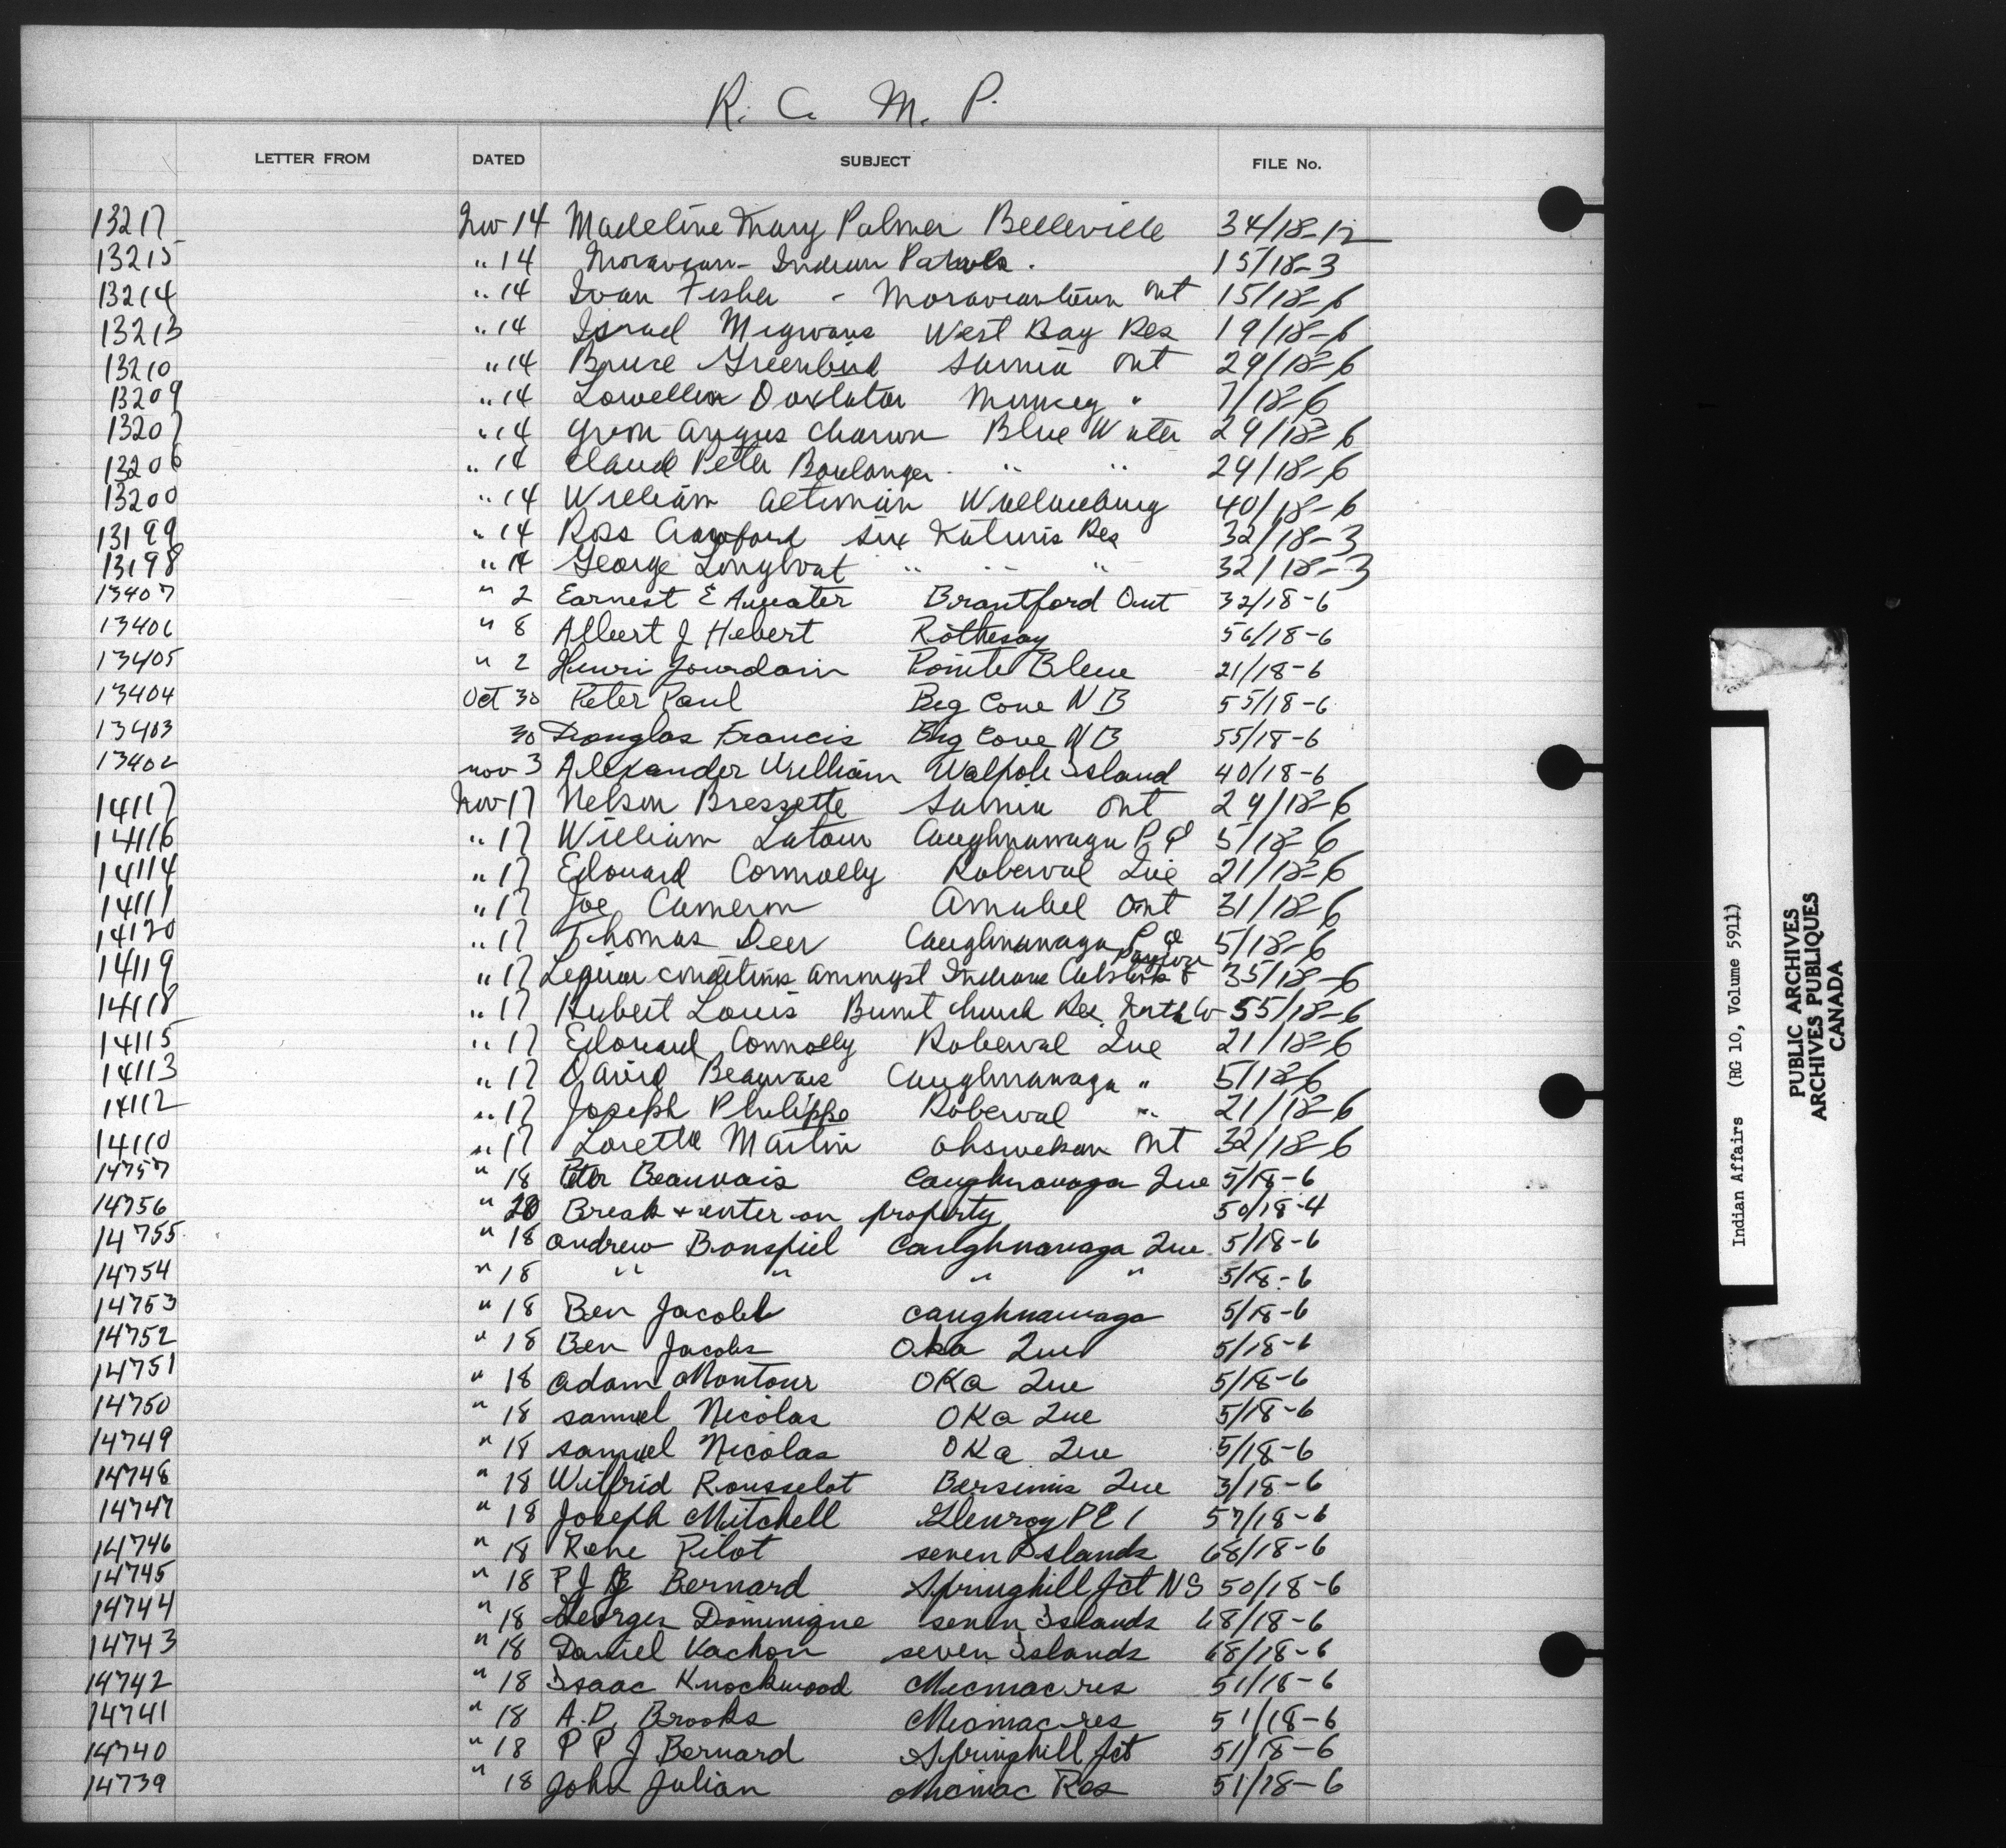 R. C. M. P.
LETTER FROM DATED SUBJECT FILE No.
13217 Nov 14 Madeline Mary Palmer Belleville 34/18-12
13215 " 14 Moravian - Indian Patrols. 15/18-3
13214 " 14 Ivan Fisher - Moraviantown Ont 15/18-6
13213 " 14 Israel Migwans West Bay Res 19/18-6
13210 " 14 Bruce Greenbird Sarnia Ont 29/18-6
13209 " 14 Lowellen Doxtator Muncey " 7/18-6
13207 " 14 Angus Blue Water 29/18-6
13206 " 14 Claud Peter Boulanger " " 29/18-6
13200 " 14 William Altiman Wallaceburg 40/18-6
13199 " 14 Ross Crawford Six Nations Res 32/18-3
13198 " 14 George Longboat " " " 32/18-3
13407 " 2 Earnest E Brantford Ont 32/18-6
13406 " 8 Albert J Hebert Rothesay 56/18-6
13405 " 2 Henri Jourdain Pointe Bleue 21/18-6
13404 Oct 30 Peter Paul Big Cove N B 55/18-6
13403 30 Douglas Francis Big Cove N B 55/18-6
13402 nov 3 Alexander William Walpole Island 40/18-6
14117 Nov 17 Nelson Bressette Sarnia Ont 29/18-6
14116 " 17 William Latour Caughnawaga P Q 5/18-6
14114 " 17 Edouard Connolly Roberval Que 21/18-6
14111 " 17 Joe Cameron Amabel Ont 31/18-6
14120 " 17 Thomas Deer Caughnawaga P Q 5/18-6
14119 " 17 Liquor conditions amongst Indians 35/18-6
14118 " 17 Hubert Louis Burnt Church Res. 55/18-6
14115 " 17 Edouard Connolly Roberval Que 21/18-6
14113 " 17 David Beauvais Caughnawaga " 5/18-6
14112 " 17 Joseph Philippe Roberval " 21/18-6
14110 " 17 Loretta Martin Ohsweken Ont 32/18-6
14757 " 18 Peter Beauvais Caughnawaga Que 5/18-6
14756 " 20 Break & enter on property 50/18-4
14755 " 18 Andrew Bonspiel Caughnawaga Que. 5/18-6
14754 " 18 " " " " 5/18-6
14753 " 18 Ben Jacobs Caughnawaga 5/18-6
14752 " 18 Ben Jacobs Oka Que 5/18-6
14751 " 18 Adam Montour OKa Que 5/18-6
14750 " 18 Samuel Nicolas OKa Que 5/18-6
14749 " 18 Samuel Nicolas OKa Que 5/18-6
14748 " 18 Wilfrid Rousselot Bersimis Que 3/18-6
14747 " 18 Joseph Mitchell Glenroy PEI 57/18-6
14746 " 18 Rene Pilot seven Islands 68/18-6
14745 " 18 P J B Bernard Springhill Jct NS 50/18-6
14744 " 18 Georges Dominique seven Islands 68/18-6
14743 " 18 Daniel Vachon seven Islands 68/18-6
14742 " 18 Isaac Knockwood Micmac res 51/18-6
14741 " 18 A.D. Brooks Micmac res 51/18-6
14740 " 18 P P J Bernard Springhill Jct 51/18-6
14739 " 18 John Julian Micmac Res 51/18-6
Indian Affairs (RG 10, Volume 5911)
PUBLIC ARCHIVES
ARCHIVES PUBLIQUES
CANADA